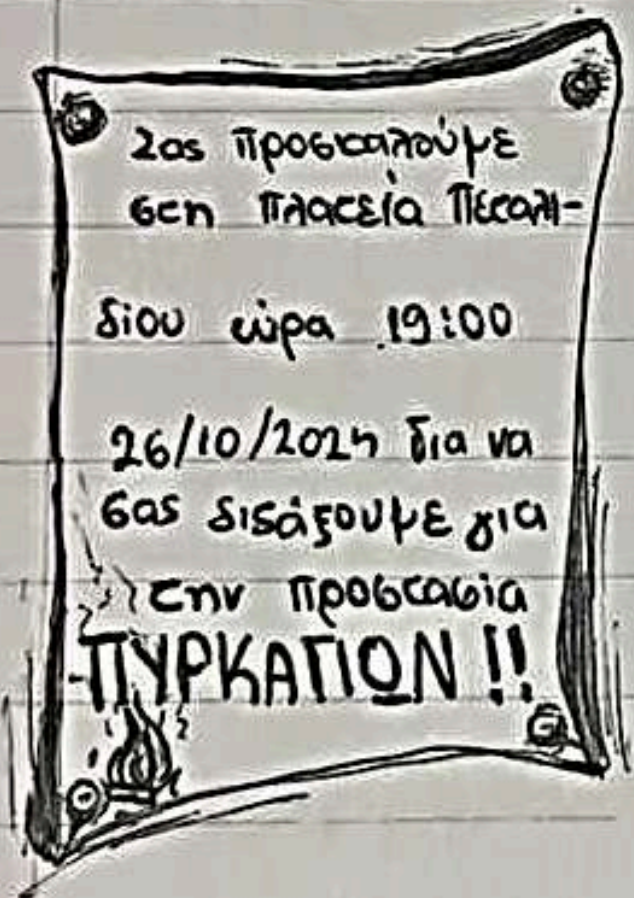 Σας προσκαλούμε
στη πλατεία Πεταλι-
δίου ώρα 19:00
26/10/2024 για να
σας διδάξουμε για
την προστασία
ΠΥΡΚΑΓΙΩΝ !!